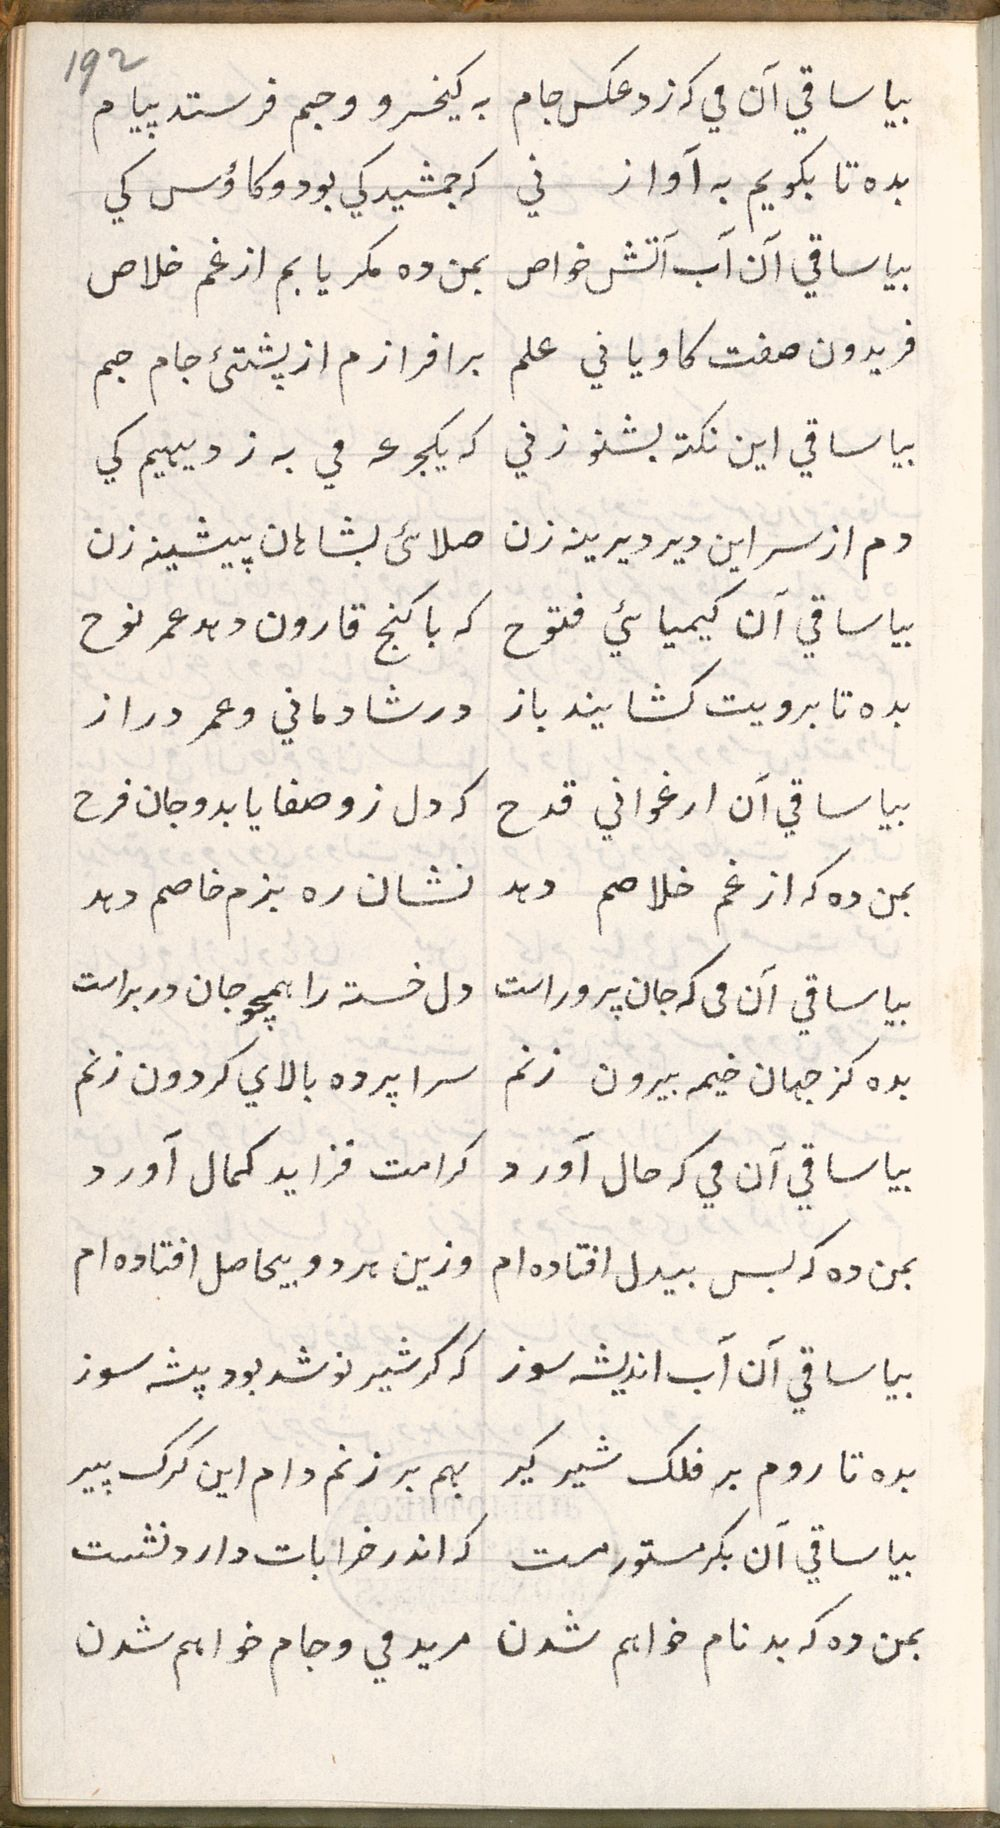 192
بيا ساقي آن مي كه زد عكس جام به كيخسرو و جم فرستد پيام
بده تا بكويم به آواز ني كه جمشيد كي بود و كاؤس كي
بيا ساقي آن آب آتش خواص بمن ده مكر يابم از غم خلاص
فريدون صفت كاوياني علم برافرازم از پشتئ جام جم
بيا ساقي اين نكته بشنو ز ني كه يكجرعه مي به ز ديهيم كي
دم از سر اين دير ديرينه زن صلائ بشاهان پيشينه زن
بيا ساقي آن كيميائي فتوح كه با كنج قارون دهد عمر نوح
بده تا برويت كشايند باز در شادماني و عمر دراز
بيا ساقي آن ارغواني قدح كه دل زو صفا يابد و جان فرح
بمن ده كه از غم خلاصم دهد نشان ره بزم خاصم دهد
بيا ساقي آن مى كه جان پرور است دل خسته را همچو جان در بر است
بده كز جهان خيمه بيرون زنم سراپرده بالاي كردون زنم
بيا ساقي آن مي كه حال آورد كرامت فزايد كمال آورد
بمن ده كه بس بيدل افتاده ام وزين هردو بيحاصل افتاده ام
بيا ساقي آن آب انديشه سوز كه كر شير نوشد بود پيشه سوز
بده تا روم بر فلك شير كير بهم بر زنم دام اين كرك پير
بيا ساقي آن بكر مستور مست كه اندر خرابات دارد نشست
بمن ده كه بدنام خواهم شدن مريد مي و جام خواهم شدن